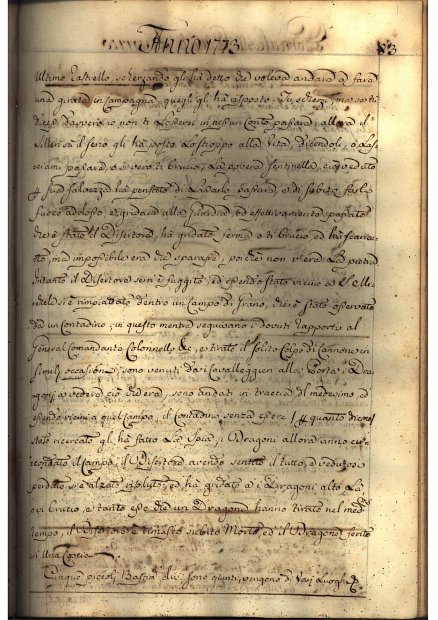 Anno 1773
83
Ultimo Rastello, scherzando gli ha detto che voleva andare a fare
una girata in Campagna, quegli gli ha risposto. Tu scherzi, ma se ti
dicessi davvero io non ti Lasserei in nessun Conto passare; allora il
sul serio gli ha posto Lo stioppo alla Vita, dicendoli, o Las-
ciami passare, o vero ti brucio, La povera Sentinella, ciò veduto
p sua salvezza ha pensato di Lasciarlo passare, e di subito farli
fuoco adosso, e gridare alla Guardia, ed effettivamente passato
che è stato il Disertore, ha gridato ferma o ti brucio, ed ha scaric-
ato, ma impossibile era che sparasse, poiche non v'era La pietra
Intanto il Disertore sen'è fuggito, ed essendo stato vicino a
si è rimpiattato dentro un Campo di Grano, che è stato osservato
da un Contadino, in questo mentre seguivano i dovuti Rapporti al
General Comandante Colonnello &c, e tirato il solito Colpo di Cannone in
simili occasioni, sono venuti da i Cavalleggieri alla Porta i Dra-
goni a vedere ciò che era, sono andati in traccia del medesimo, ed
essendo vicini a quel Campo, il Contadino senza essere p quanto dicono
stato ricercato gli ha fatto La Spia, i Dragoni allora anno cir-
condato il Campo, il Disertore avendo sentito il tutto, e vedutosi
perduto si è alzato risoluto, ed ha gridato a i Dragoni alto Là
o vi brucio, e tanto esso che un Dragone hanno tirato nel med.mo
tempo, il Disertore è rimasto subito Morto, ed il Dragone ferito
in Una Coscia.
Cinque piccoli Bastim.ti sono giunti, vengono di Varj Luoghi